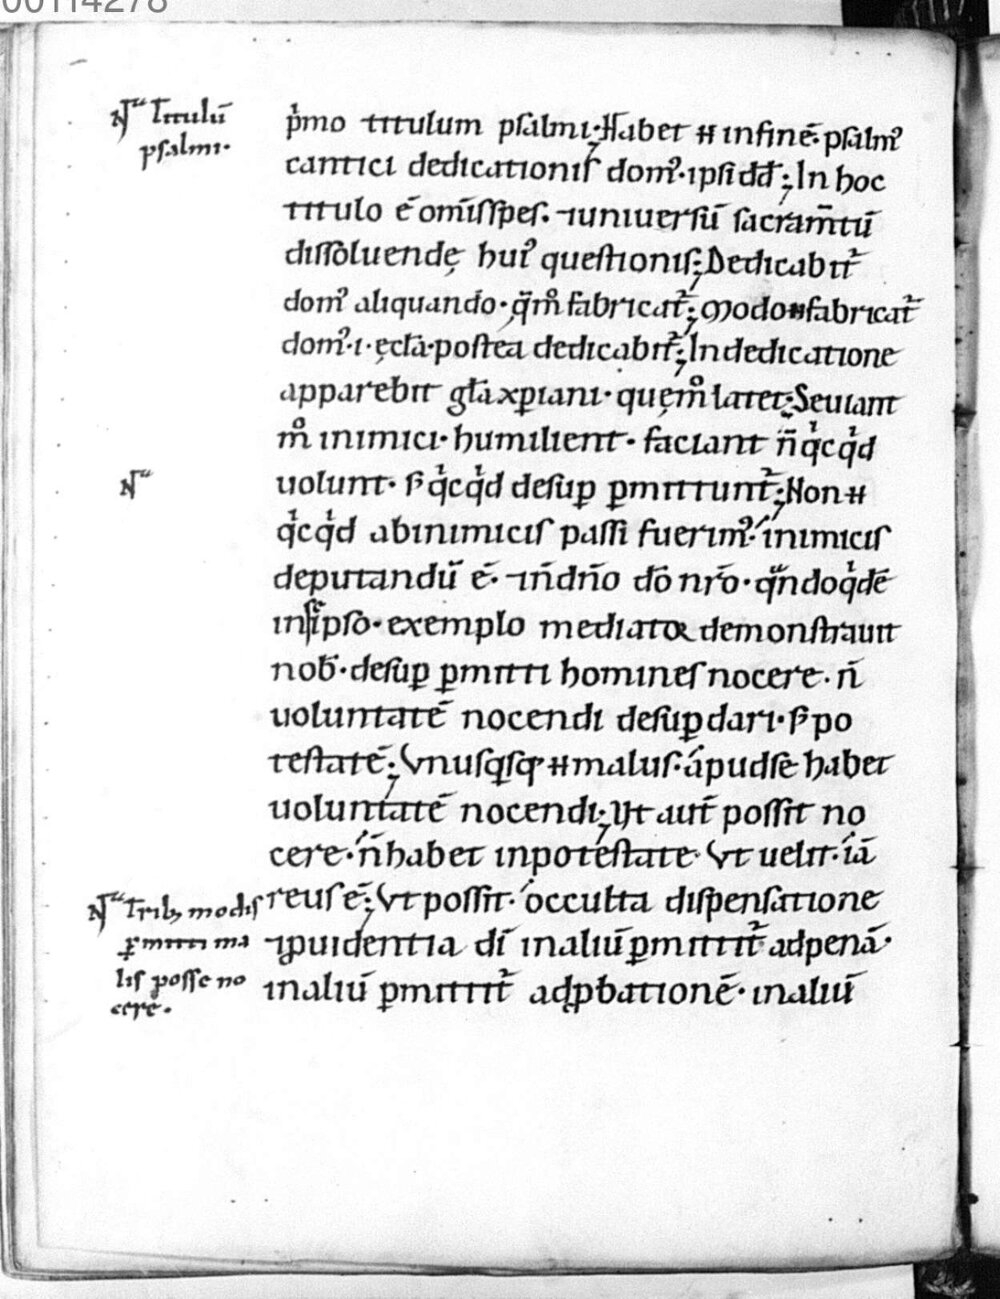 00114278
N̄ Titulū
psalmi·
p͛mo titulum psalmi; Habet ħ infinē· psalmꝰ
cantici dedicationis domꝰ· ipsi dđ; In hoc
titulo ē omīs spes· ⁊uniuersū sacram̄tū
dissoluendę huiꝰ questionis; Dedicabit᷑
domꝰ aliquando· q̄ m̊ fabricat᷑; Modo ħ fabricat᷑
domꝰ·i·ęcl̄a· postea dedicabit᷑; In dedicatione
apparebit gl̄a xp̄iani· quę m̊ latet; Seuiant
m̊ inimici· humilient· faciant n̄ qͥcqͥd
uolunt· s; qͥcqͥd desuꝑ ꝑmittunt᷑; Non ħ
N̄
qͥcqͥd ab inimicis passi fuerimꝰ· inimicis
deputandū ē· ⁊ n̄ dn̄o dō nr̄o· qͣndoqͥdē
in se ipso· exemplo mediatoꝝ demonstrauit
nob̄· desuꝑ ꝑmitti homines nocere· n̄
uoluntatē nocendi desuꝑ dari· s; po
testatē; Vnusqͥsqꝫ ħ malus· apud se habet
uoluntatē nocendi; Vt aut̄ possit no
cere· n̄ habet in potestate· Vt uelit· iā
reus ē; Vt possit· occulta dispensatione
N̄ Tribꝫ modis
ꝑmitti ma
lis posse no
cere·
⁊ ꝓuidentia dī in aliū ꝑmittit᷑ ad penā·
in aliū ꝑmittit᷑ ad ꝓbationē· in aliū